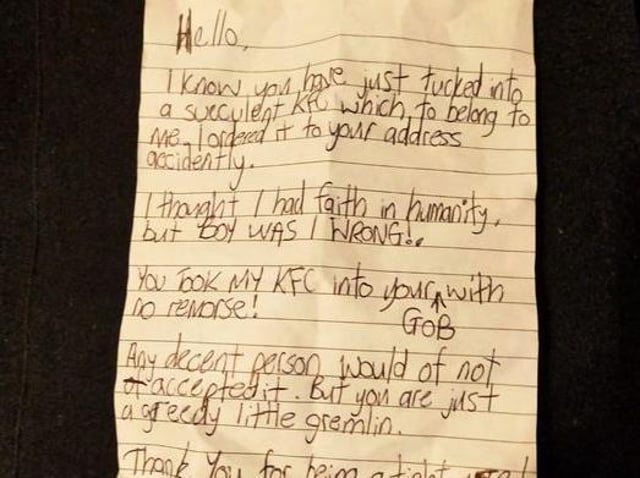 Hello,
I know you have just tucked into
a succulent KFC which, to belong to
me, I ordered it to your address
accidently.
I thought I had faith in humanity,
but boy WAS I WRONG!.
You Took MY KFC into your GOB with
no remorse!
Any decent person would of not
accepted it. But you are just
a greedy little gremlin.
Thank You for being a tight